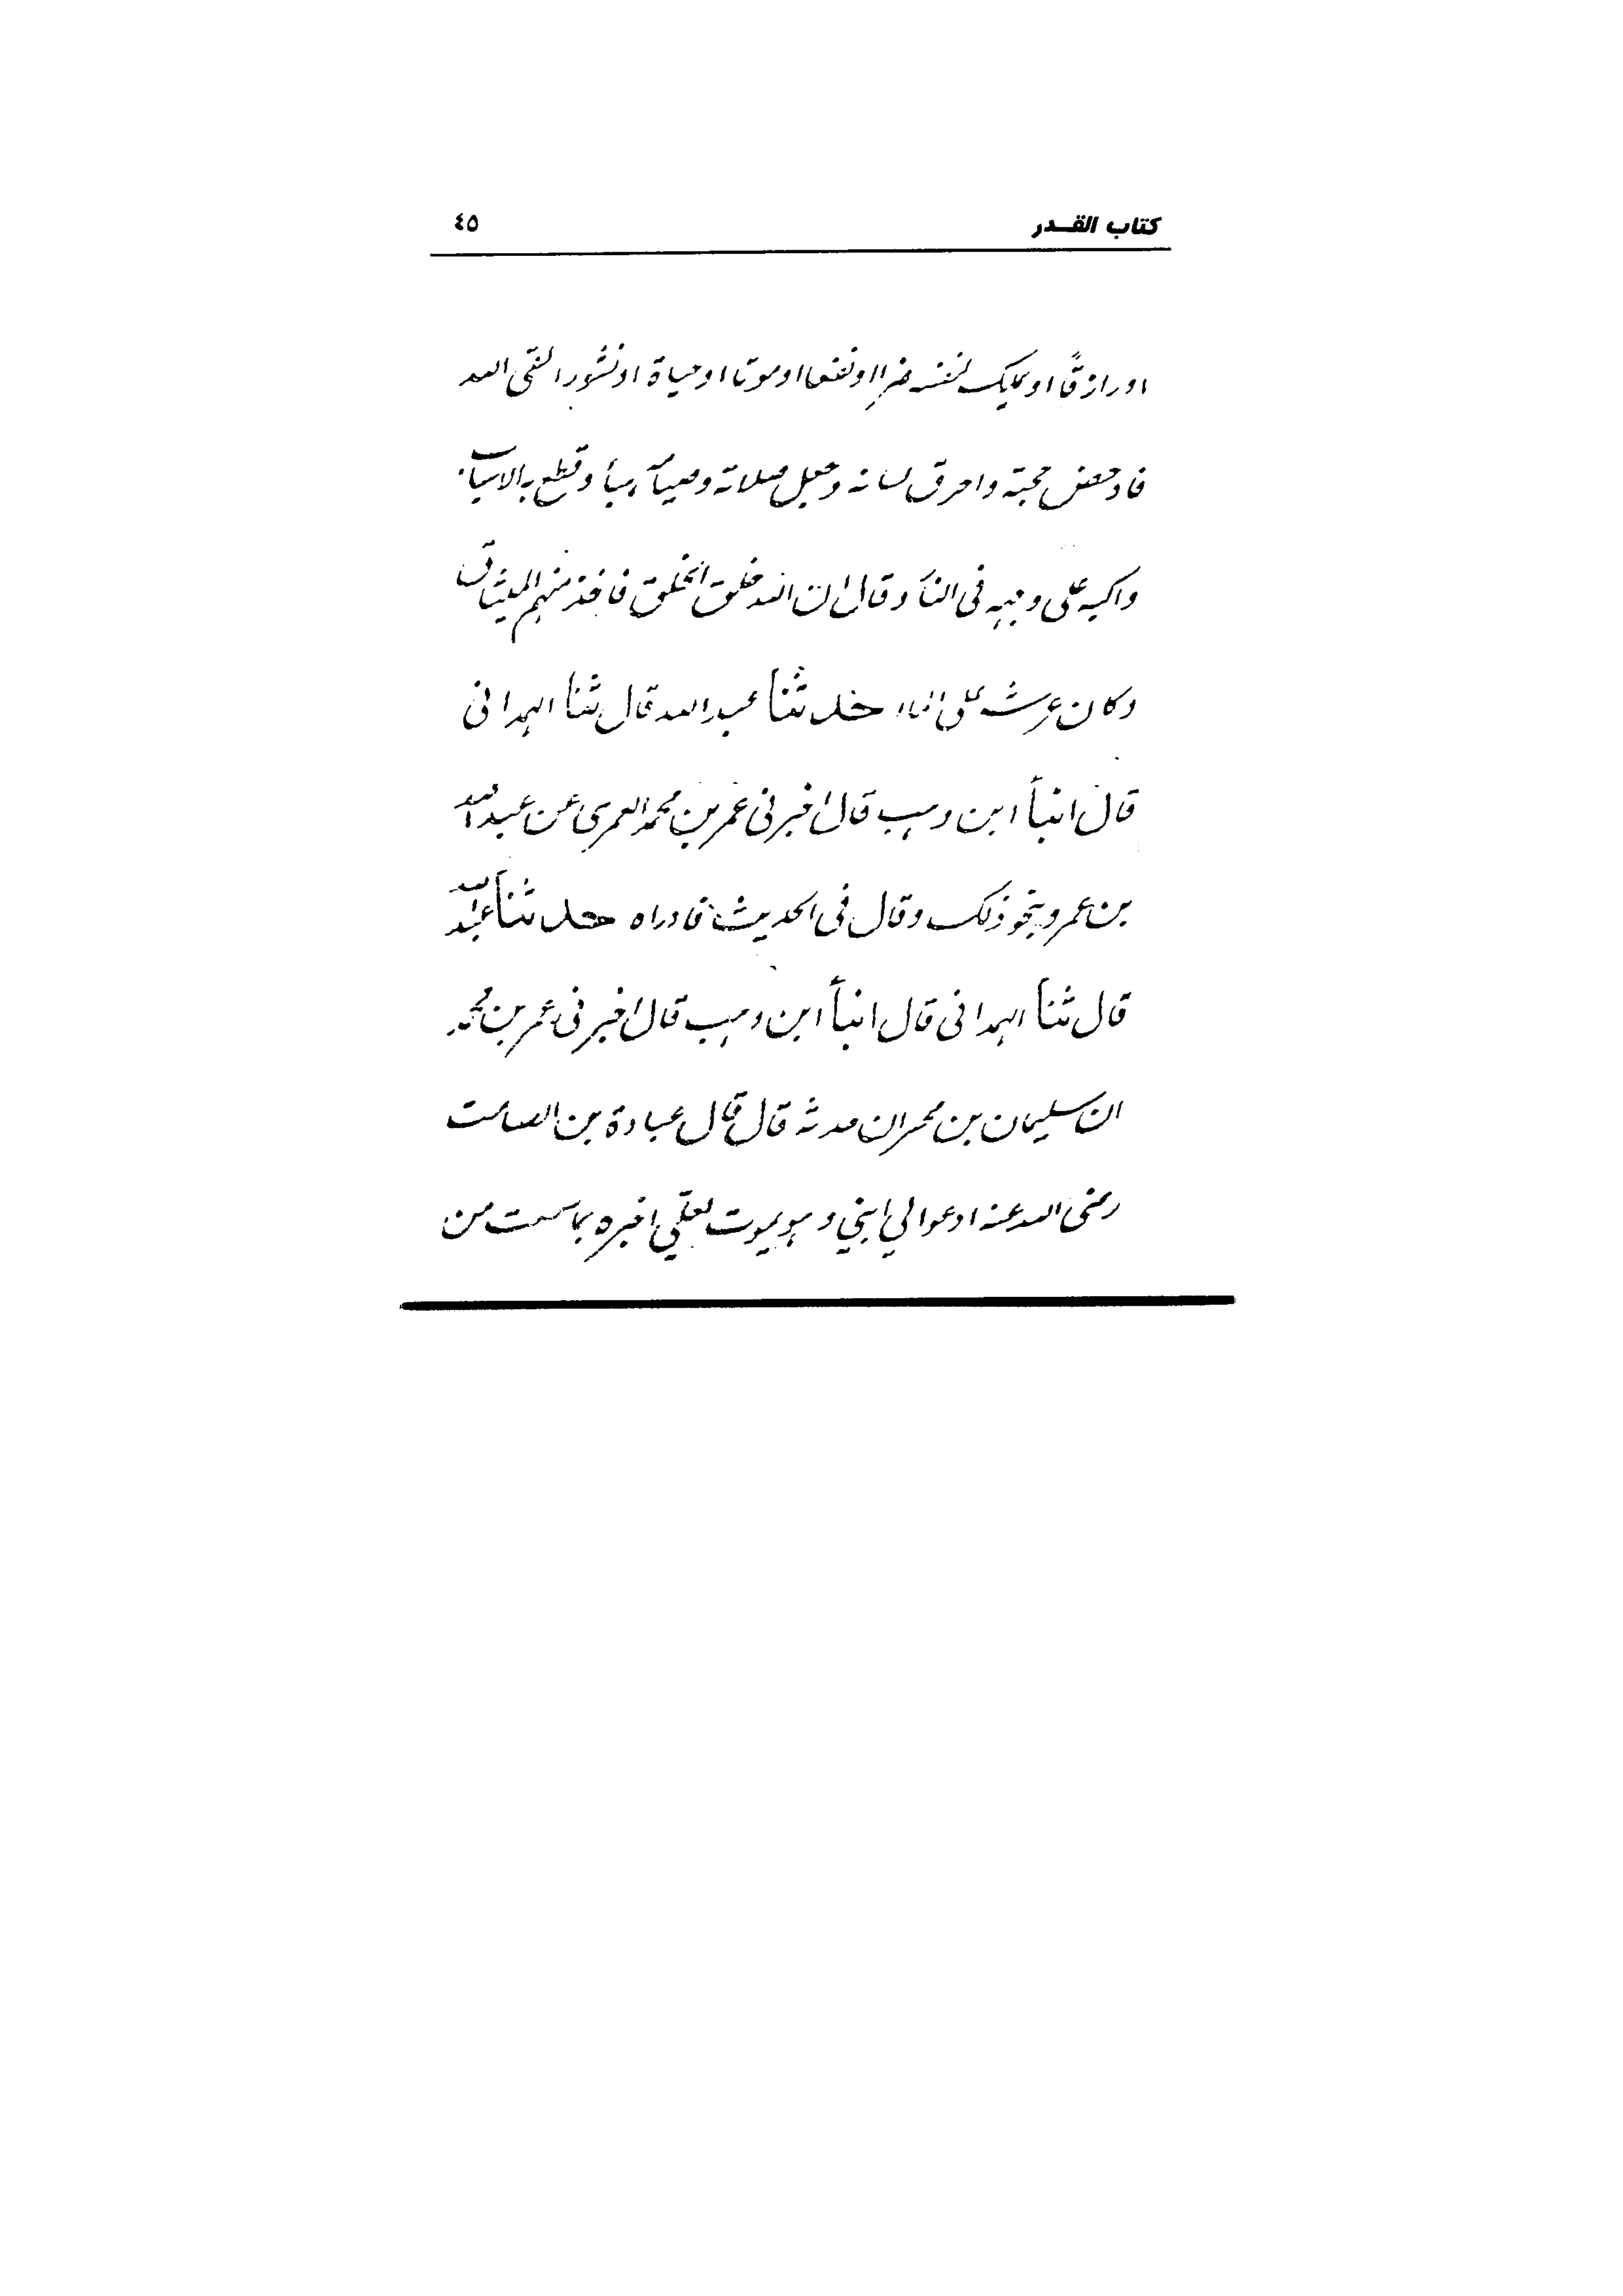 كتاب القـدر
٤٥
او رازقًا او يملك لنفسه ضرا او نفعا او موتا او حياة او نشورا لقى الله
فادحض حجته واحرق لسانه وجعل صلاته وصيامه هباً وقطع به الاسباب
واكبه على وجهه فى النار وقال ان الله خلق الخلق فاخذ منهم الميثاق
وكان عرشه على الماء حدثنا عبد الله قال ثنا الهمدانى
قال انبأ ابن وهب قال اخبرنى عمر بن محمد العمرى عن عبد الله
بن عمرو بنحو ذلك وقال فى الحديث فادراه حدثنا عبد الله
قال ثنا الهمدانى قال انبأ ابن وهب قال اخبرنى عمر بن محمد
ان سليمان بن مهران حدثه قال قال عبادة بن الصامت
رضى الله عنه ادعوا لي ابني وهو يموت لعلّي اخبره بما سمعت من